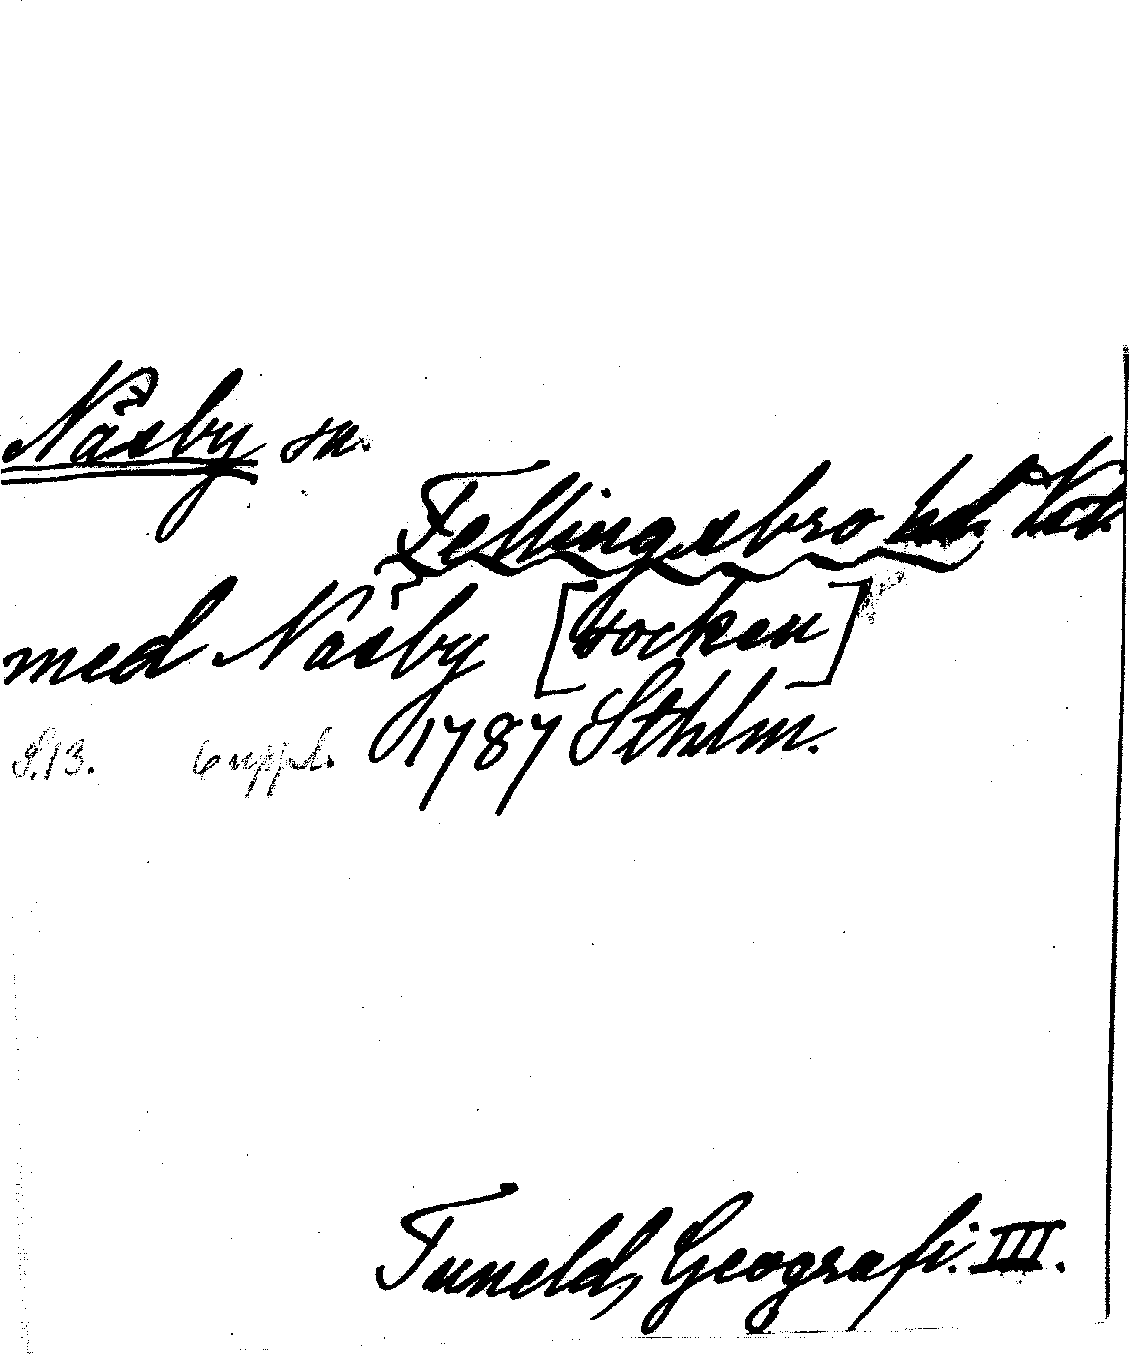 Näsby sn.
Fellingsbro hd. Vstm.
med Näsby [socken]
S.13. 6 uppl. 1787 Sthlm.
Tuneld, Geografi. III.